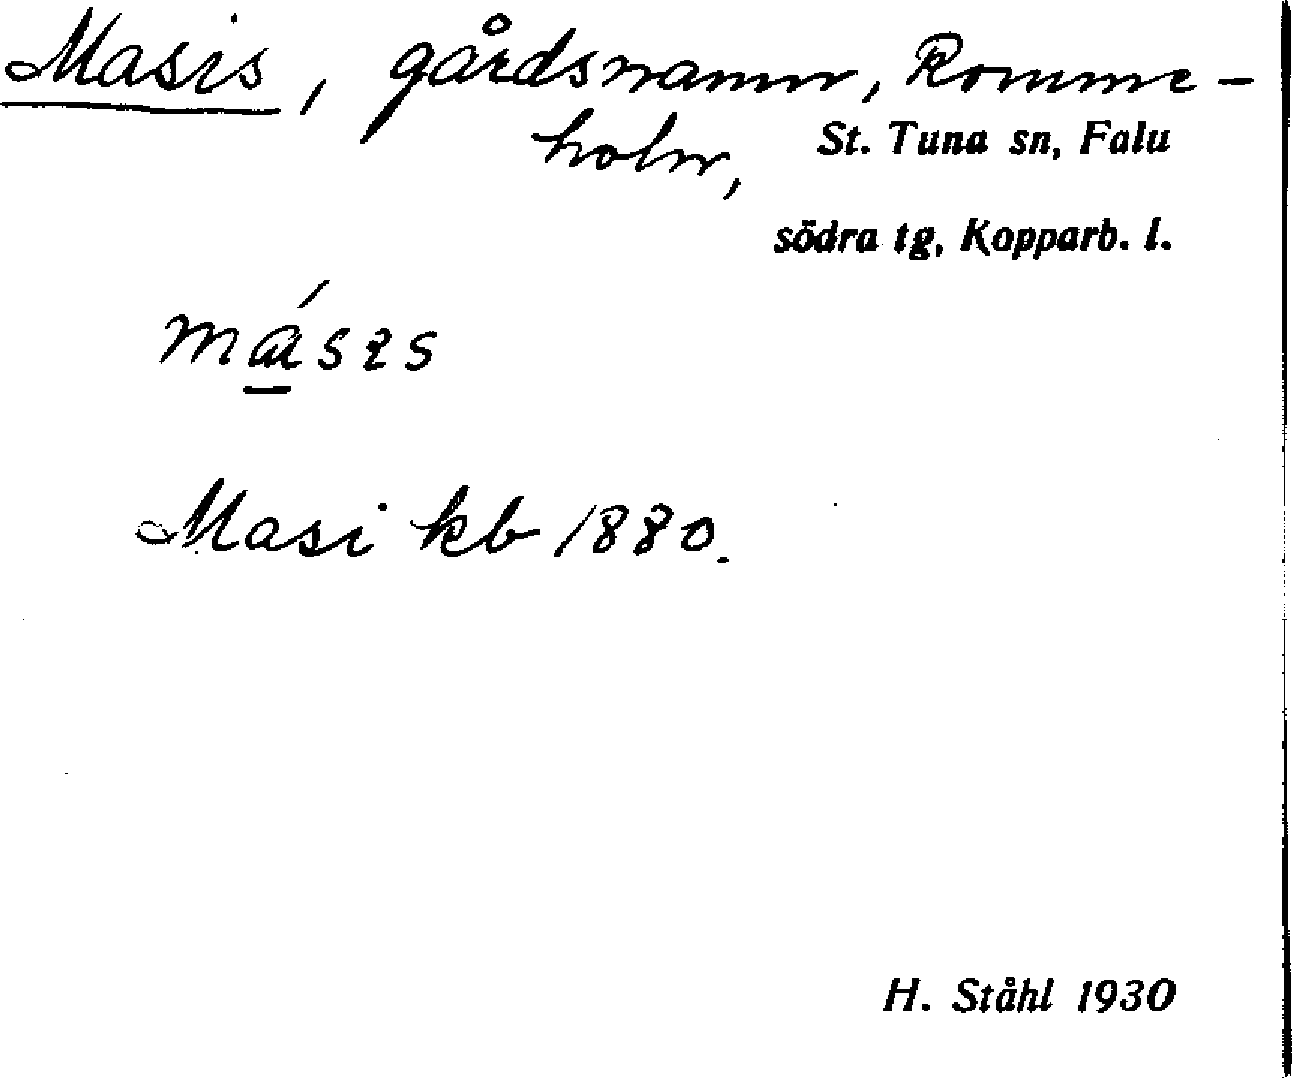 Masis, gårdsnamn, Romme-
holm, St. Tuna sn, Falu
södra tg, Kopparb. l.
másɪs
Masi kb 1880.
H. Ståhl 1930